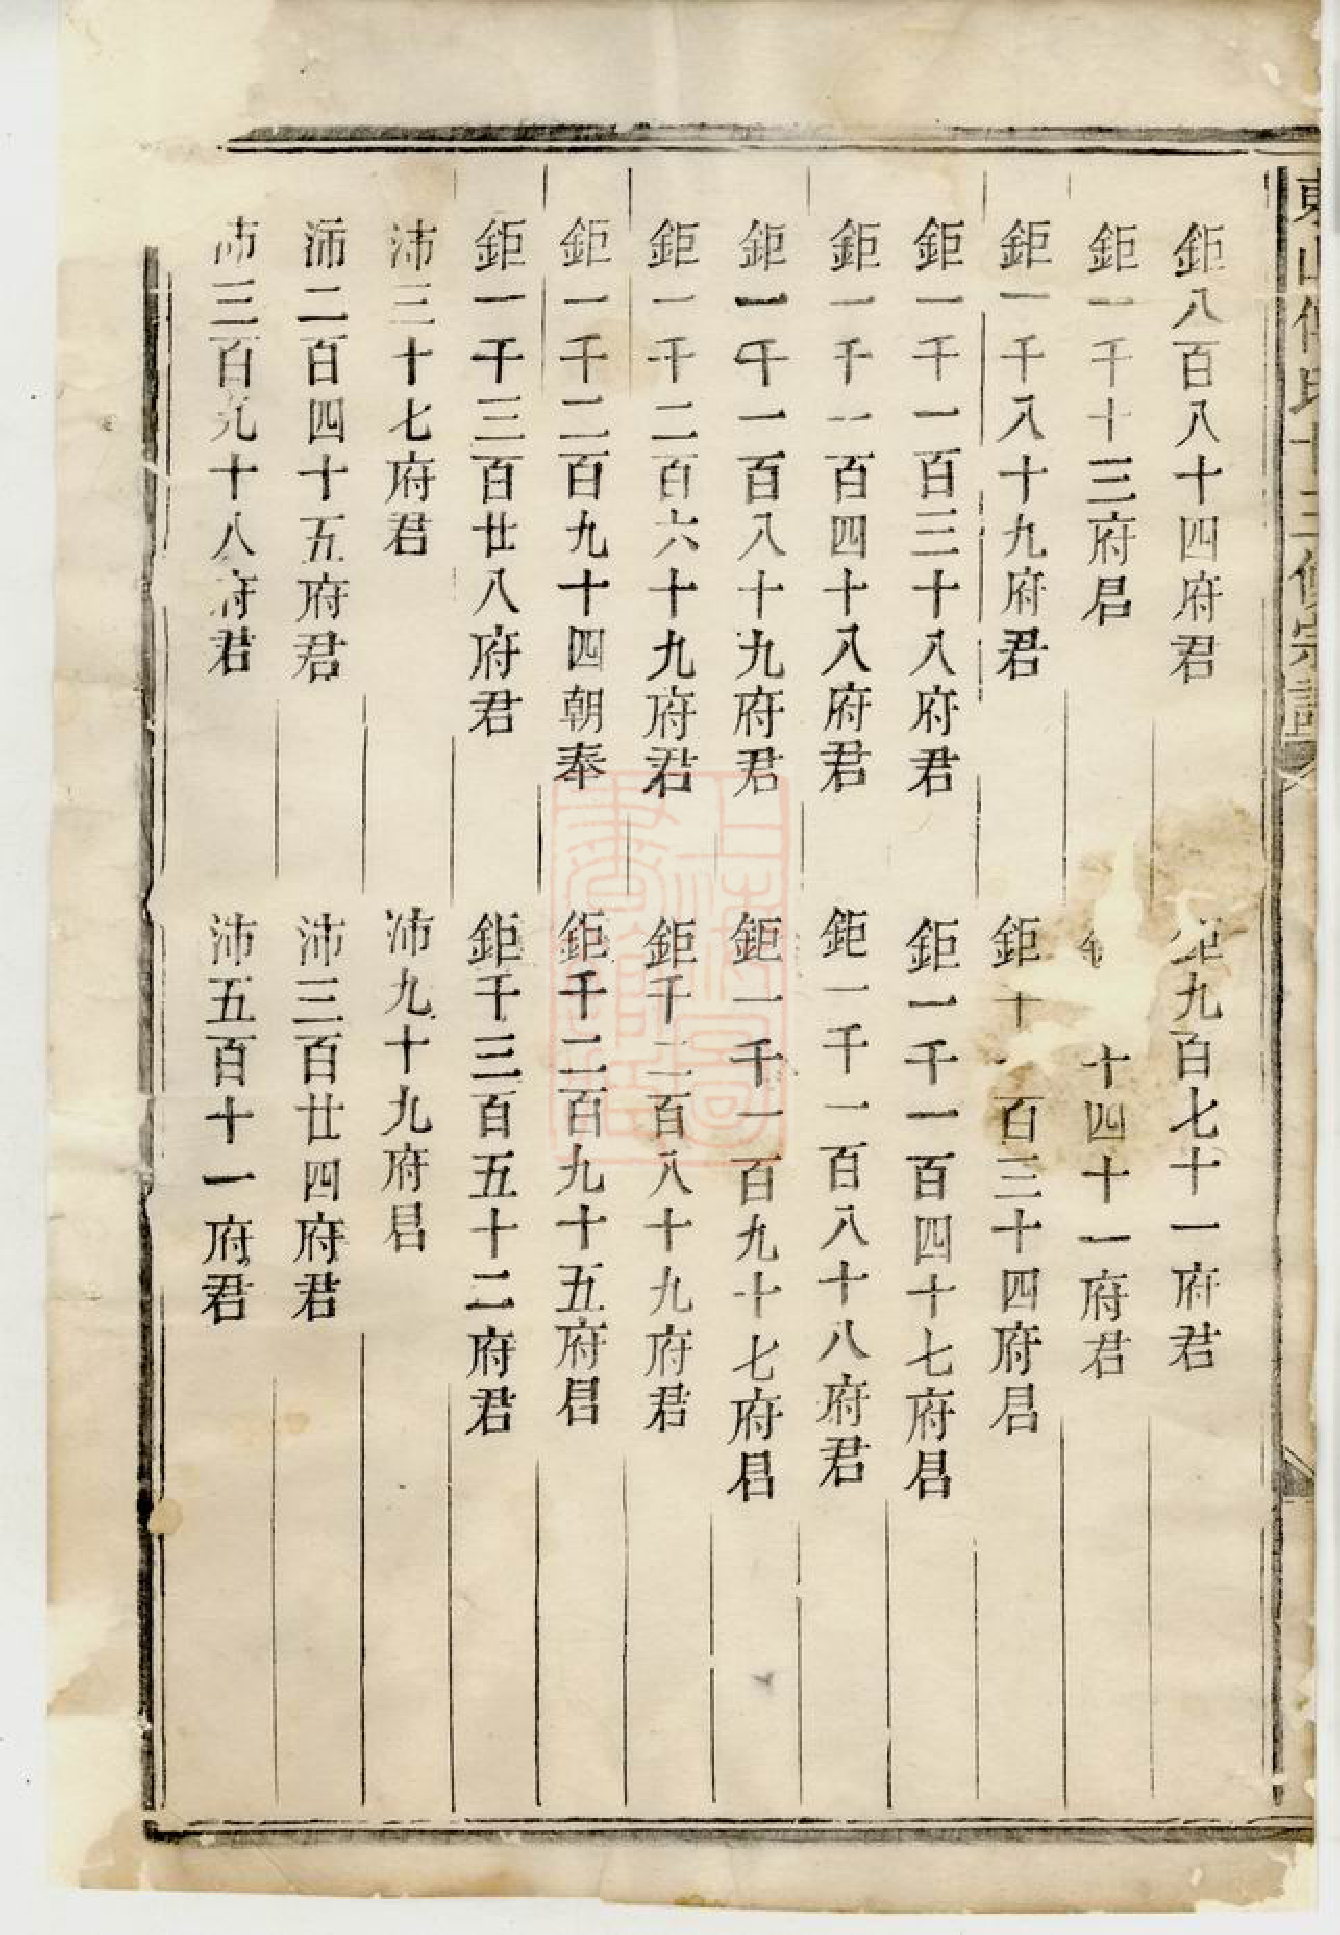 東山氏十修宗譜
鉅八百八十四府君
鉅九百七十一府君
鉅一千十三府君
四十一府君
鉅一千八十九府君
鉅千一百三十四府君
鉅一千一百三十八府君
鉅一千一百四十七府君
鉅一千一百四十八府君
鉅一千一百八十八府君
鉅一千一百八十九府君
鉅一千一百九十七府君
鉅一千二百六十九府君
鉅千二百八十九府君
鉅一千二百九十四朝奉
鉅千二百九十五府君
鉅一千三百廿八府君
鉅千三百五十二府君
沛三十七府君
沛九十九府君
沛二百四十五府君
沛三百廿四府君
沛三百九十八府君
沛五百十一府君
上海圖書館藏